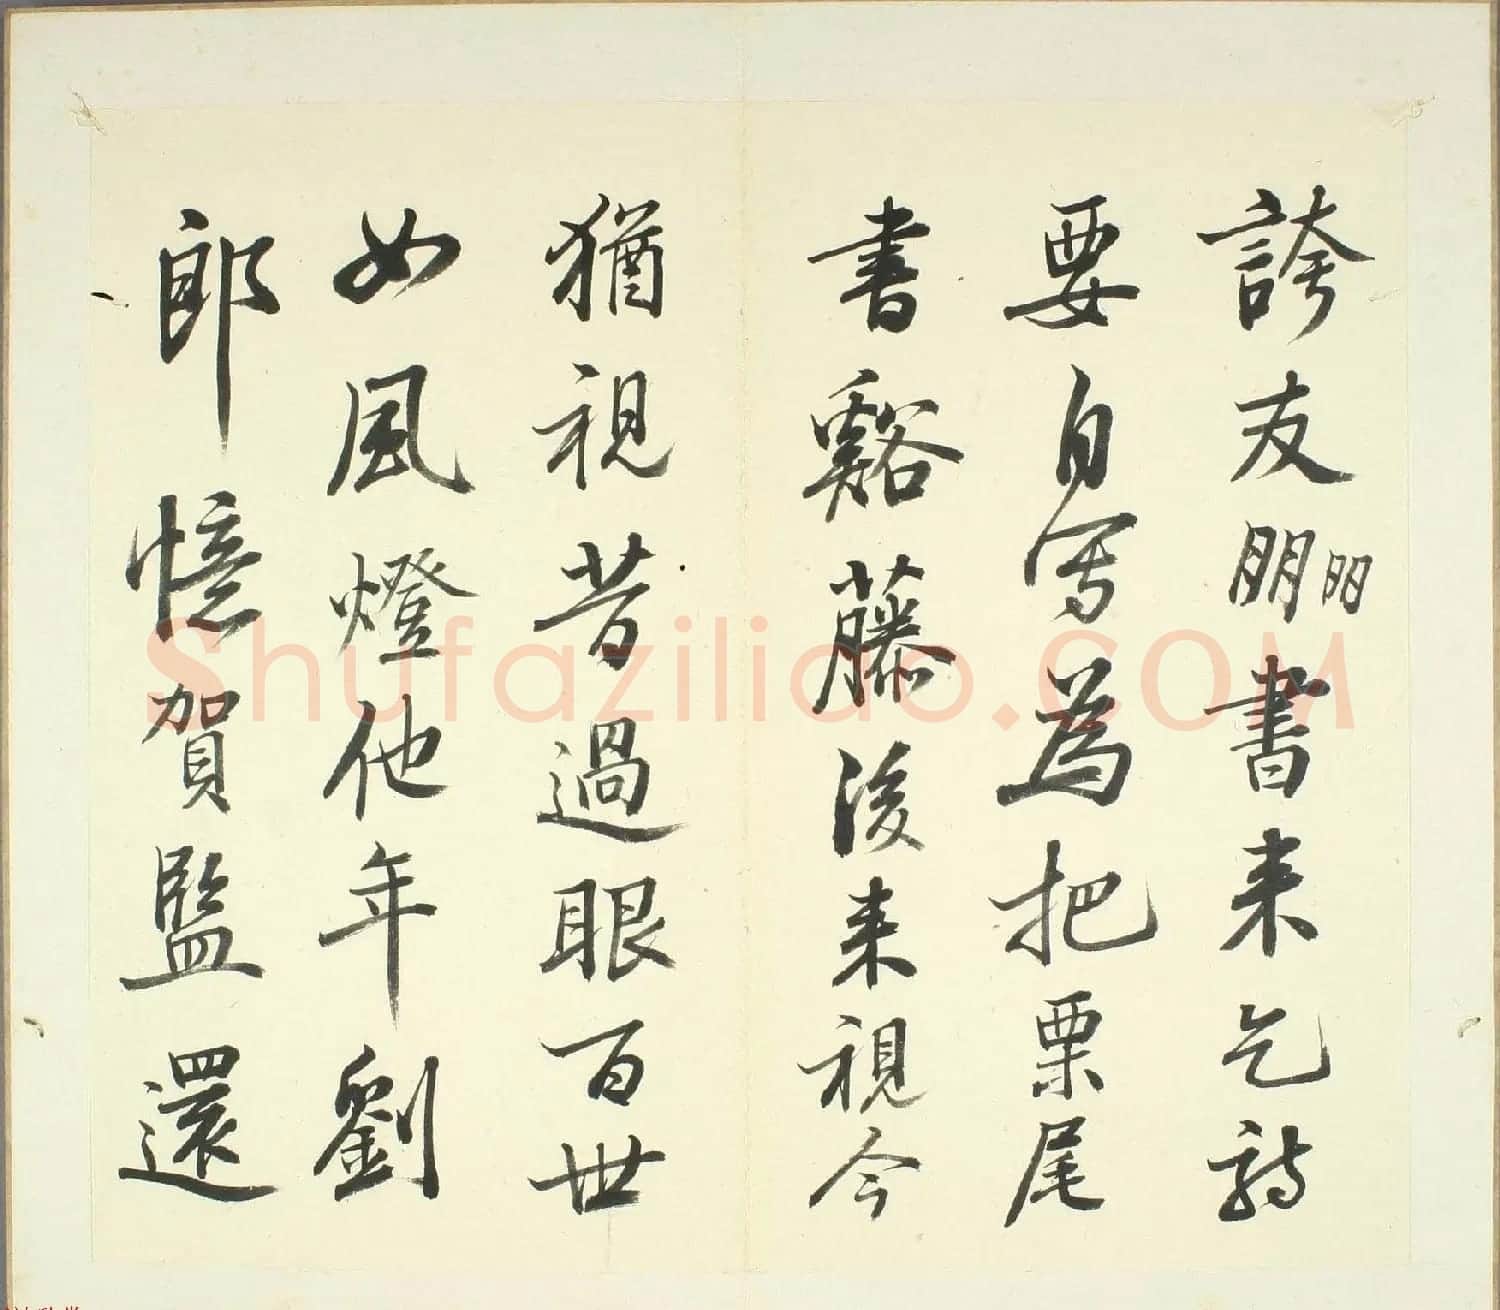 誇友朋朋書来乞詩
要自写為把栗尾
書谿藤後来視今
猶視昔過眼百世
如風燈他年劉
郎憶賀監還
Shufaziliao.COM